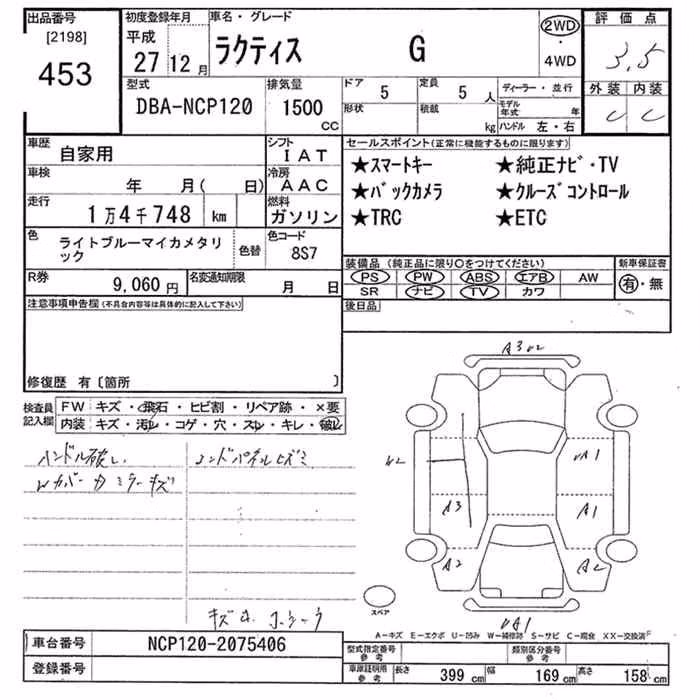 出品番号
[2198]
453
初度登録年月
平成
27 12 月
車名・グレード
ラクティス G
2WD
・
4WD
評価点
3.5
外装 内装
C C
型式
DBA-NCP120
排気量
1500
cc
ドア 5
形状
定員 5 人
積載 kg
ディーラー・並行
モデル年式 年
ハンドル 左・右
車歴
自家用
シフト
IAT
車検
年 月( 日)
冷房
AAC
走行
1万4千748 km
燃料
ガソリン
色
ライトブルーマイカメタリ
ック
色替
色コード
8S7
R券
9,060 円
名変通知期限
月 日
セールスポイント(正常に機能するものに限ります)
★スマートキー ★純正ナビ・TV
★バックカメラ ★クルーズコントロール
★TRC ★ETC
装備品(純正品に限り○をつけてください)
PS PW ABS エアB AW
SR ナビ TV カワ
新車保証書
有・無
後日品
注意事項申告欄(不具合内容等は具体的に記入して下さい)
修復歴 有〔箇所 〕
検査員
記入欄
FW キズ・飛石・ヒビ割・リペア跡・×要
内装 キズ・汚レ・コゲ・穴・スレ・キレ・破レ
ハンドル破レ
A3
A1
A3
A1
A2
A2
スペア
A-キズ E-エクボ U-凹み W-補修跡 S-サビ C-腐食 XX-交換済
車台番号
NCP120-2075406
登録番号
型式指定番号
参考
類別区分番号
参考
車庫証明用
参考
長さ 399 cm 幅 169 cm 高さ 158 cm